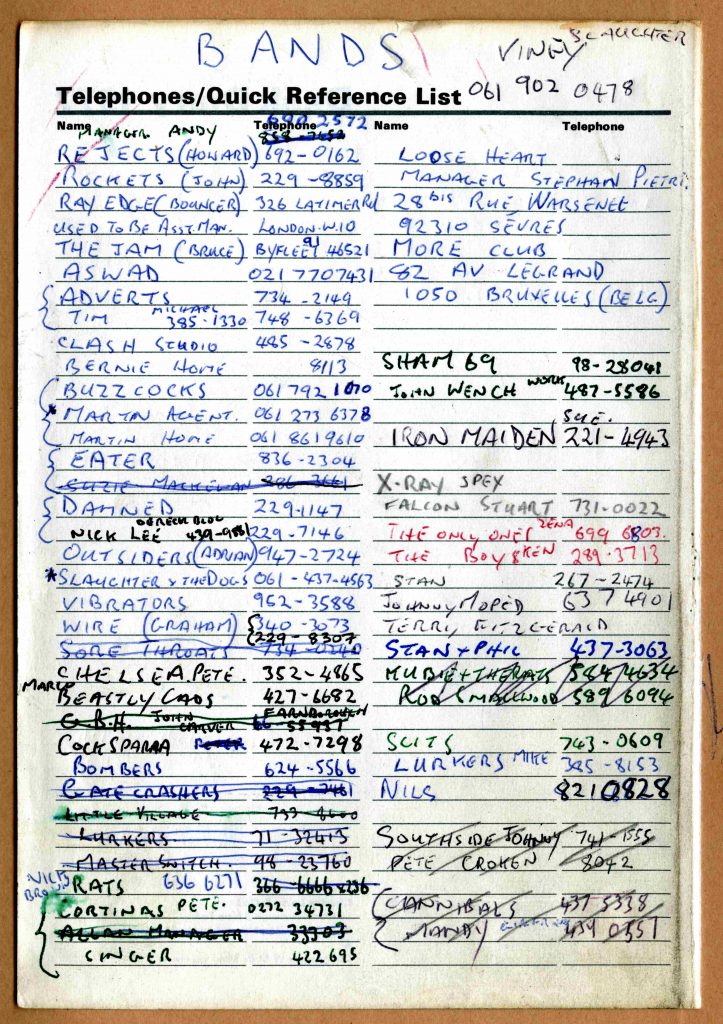 BANDS
VINEY SLAUGHTER
061 902 0478
Telephones/Quick Reference List
Name Telephone
MANAGER ANDY 690 2572
REJECTS (HOWARD) 692-0162
ROCKETS (JOHN) 229-8859
RAY EDGE (BOUNCER) 326 LATIMER Rd
USED TO BE ASST. MAN. LONDON. W.10
THE JAM (BRUCE) BYFLEET 91 46521
ASWAD 021 7707431
ADVERTS 734-2149
TIM MICHAEL 385-1330 748-6369
CLASH STUDIO 485-2878
BERNIE HOME 8113
BUZZCOCKS 061 792 1070
* MARTIN AGENT. 061 273 6378
MARTIN HOME 061 8619610
EATER 836-2304
SUZIE 286-3661
DAMNED 229-1147
NICK LEE DERECK BLOC 439-9881 229-7146
OUTSIDERS (ADRIAN) 947-2724
* SLAUGHTER & THE DOGS 061-437-4563
VIBRATORS 952-3588
WIRE (GRAHAM) 340-3073
229-8307
SORE THROATS 734-0240
CHELSEA. PETE. 352-4865
MARK
BEASTLY CADS 427-6682
G.B.H. JOHN CARVER FARNBOROUGH 55937
COCKSPARRA PETER 472-7298
BOMBERS 624-5566
GATE CRASHERS 229-7461
LITTLE VILLAGE 733-8000
LURKERS. 71-32415
MASTER SWITCH. 98-23760
RATS 636 6271 366-6666
CORTINAS PETE. 0272 34731
ALLAN MANAGER 33303
SINGER 422695
Name Telephone
LOOSE HEART
MANAGER STEPHAN PIETRI.
28 bis RUE WARSENEE
92310 SÈVRES
MORE CLUB
82 AV LEGRAND
1050 BRUXELLES (BELG)
SHAM 69 98-28041
JOHN WENCH WORK 487-5586
SUE.
IRON MAIDEN 221-4943
X-RAY SPEX
FALCON STUART 731-0022
THE ONLY ONES ZENA 699 6803.
THE BOYS KEN 289.3713
STAN 267-2474
JOHNNY MOPED 637 4901
TERRY FITZGERALD
STAN + PHIL 437-3063
MUBIE + THE RATS 584 4634
ROD SMALLWOOD 589 6094
SLITS 743-0609
LURKERS MIKE 385-8153
NILS 8210828
SOUTHSIDE JOHNNY 741-1555
PETE CROKEN 8042
CANNIBALS 437 5338
MANDY 439 0551